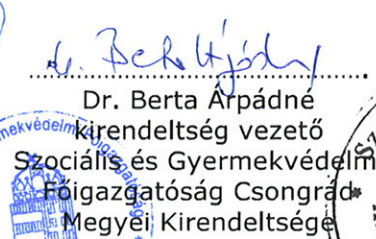 Dr. Berta Árpádné
kirendeltség vezető
Szociális és Gyermekvédelmi
Főigazgatóság Csongrád
Megyei Kirendeltsége